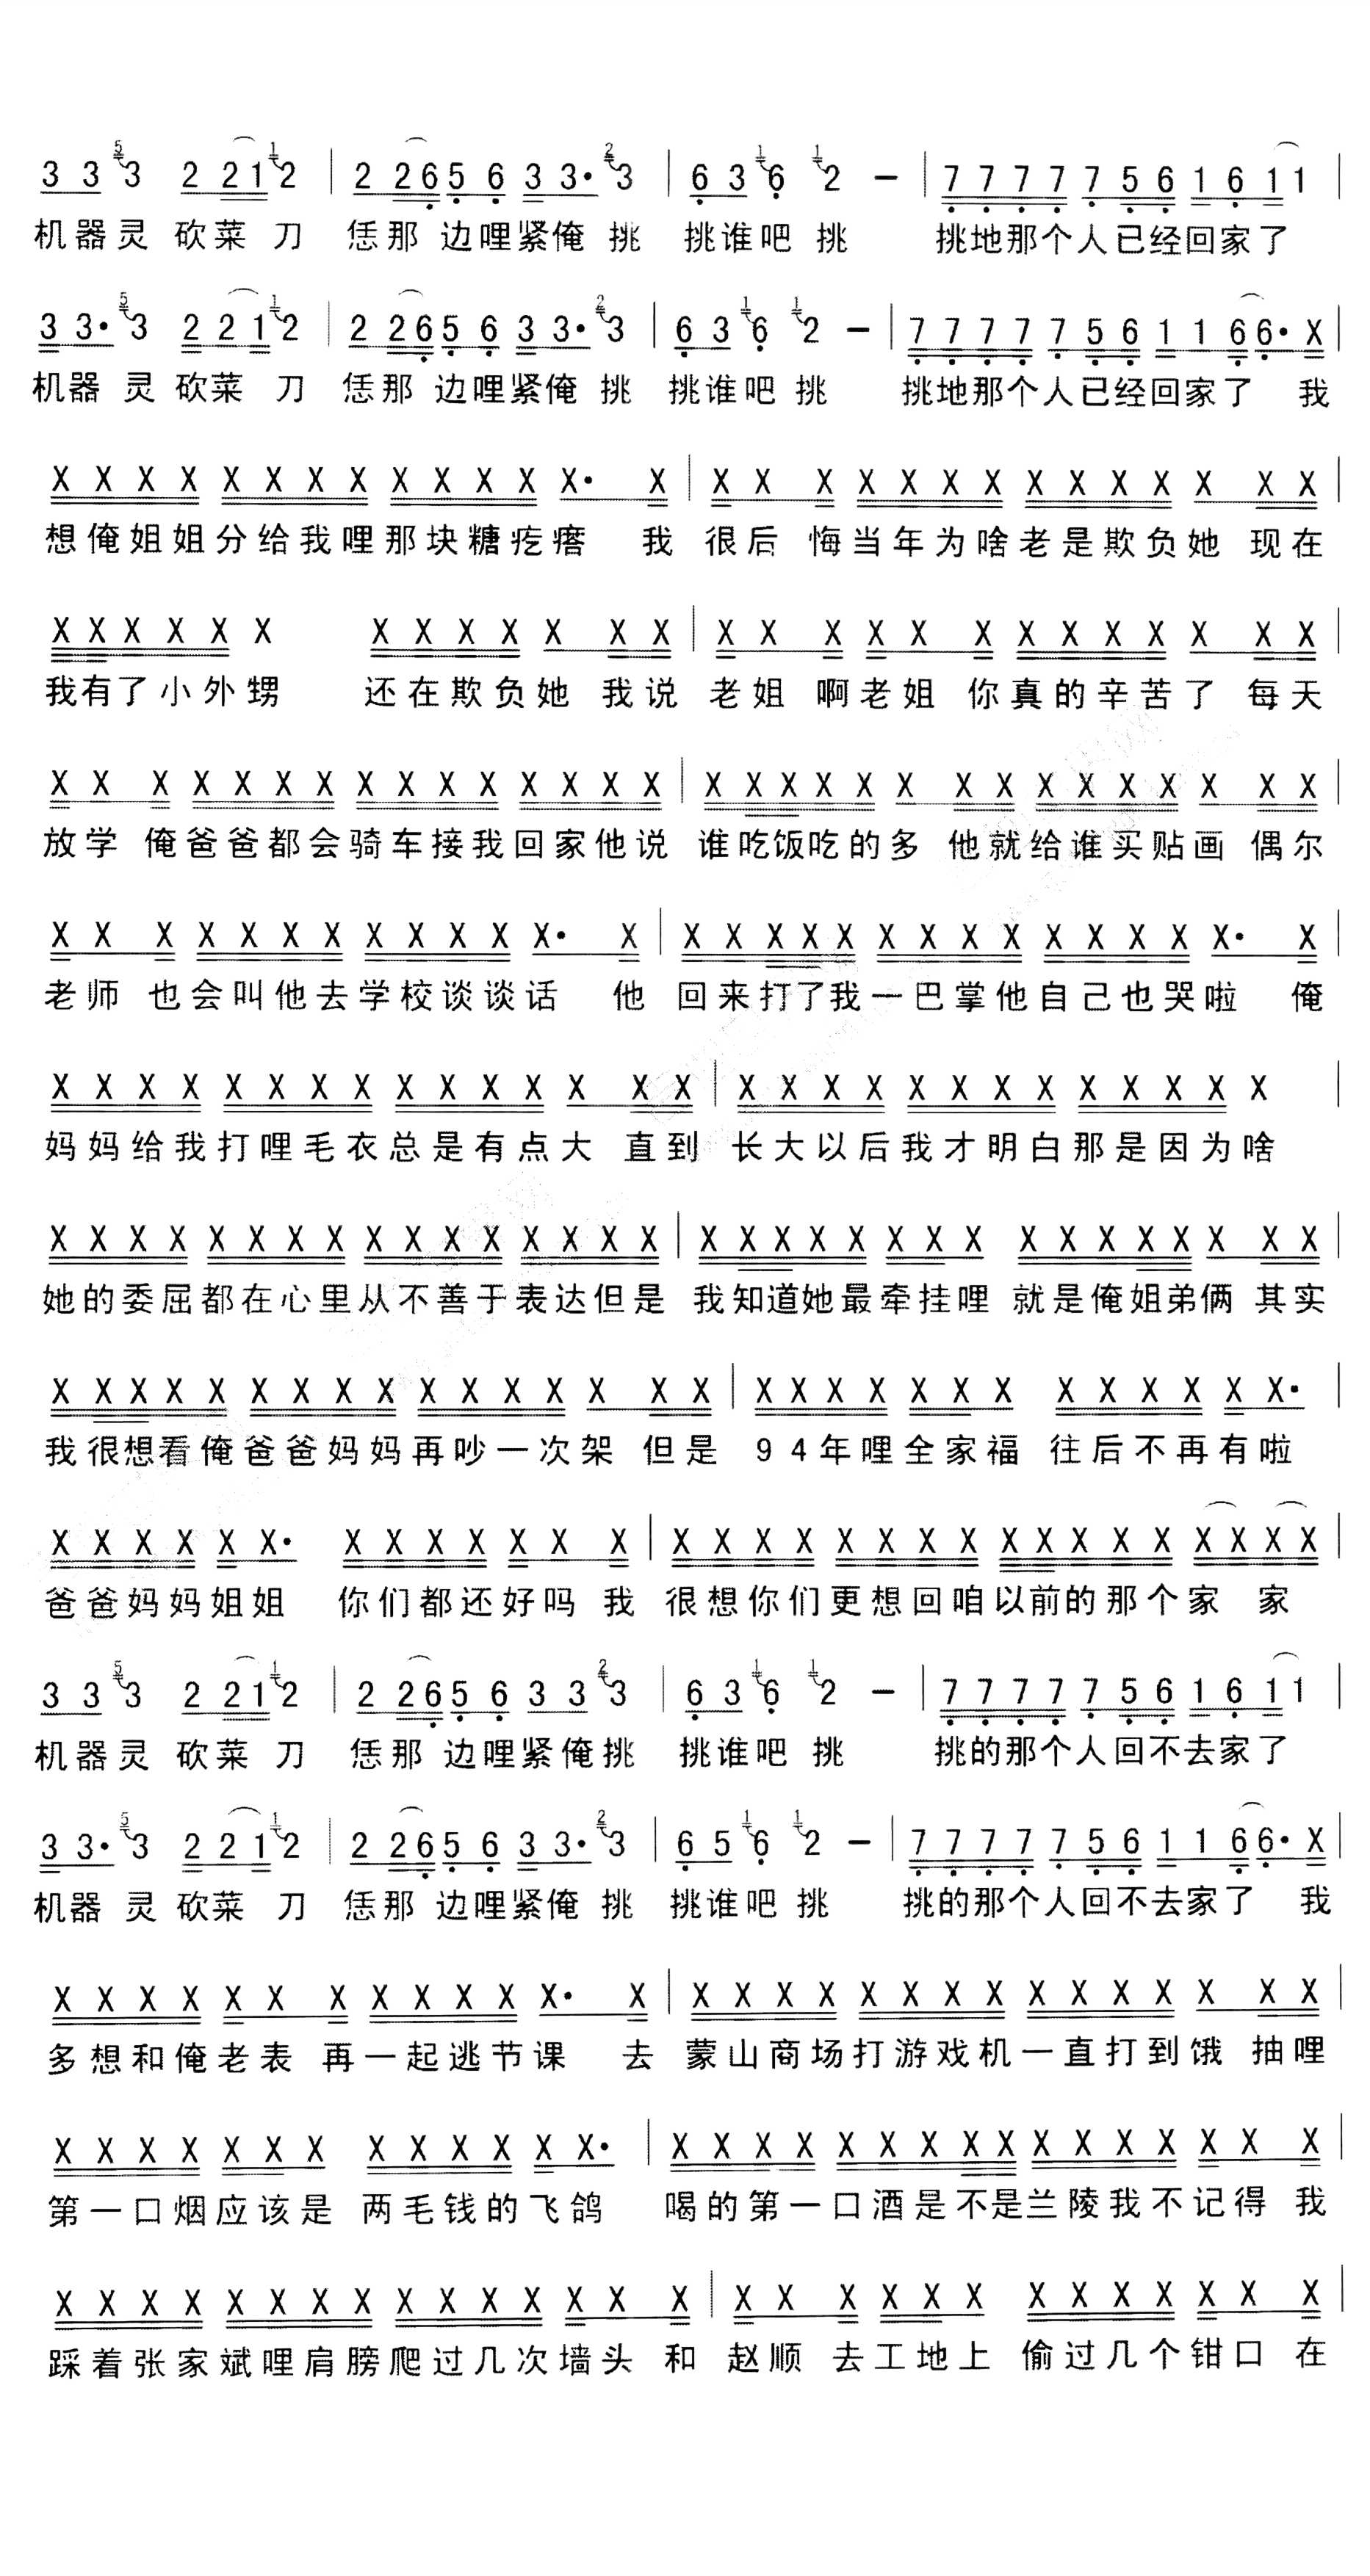 3 3 5 3 2 2 1 1 2 | 2 2 6 5 6 3 3· 2 3 | 6 3 1 6 1 2 — | 7 7 7 7 7 5 6 1 6 1 1 |
机器灵 砍菜 刀 恁那 边哩紧俺 挑 挑谁吧 挑 挑地那个人已经回家了
3 3· 5 3 2 2 1 1 2 | 2 2 6 5 6 3 3· 2 3 | 6 3 1 6 1 2 — | 7 7 7 7 7 5 6 1 1 6 6· X |
机器 灵 砍菜 刀 恁那 边哩紧俺 挑 挑谁吧 挑 挑地那个人已经回家了 我
X X X X X X X X X X X X X· X | X X X X X X X X X X X X X X |
想俺姐姐分给我哩那块糖疙瘩 我 很后 悔当年为啥老是欺负她 现在
X X X X X X X X X X X X X | X X X X X X X X X X X X X |
我有了小外甥 还在欺负她 我说 老姐 啊老姐 你真的辛苦了 每天
X X X X X X X X X X X X X X X | X X X X X X X X X X X X X X X |
放学 俺爸爸都会骑车接我回家他说 谁吃饭吃的多 他就给谁买贴画 偶尔
X X X X X X X X X X X X· X | X X X X X X X X X X X X X X· X |
老师 也会叫他去学校谈谈话 他 回来打了我一巴掌他自己也哭啦 俺
X X X X X X X X X X X X X X X | X X X X X X X X X X X X X |
妈妈给我打哩毛衣总是有点大 直到 长大以后我才明白那是因为啥
X X X X X X X X X X X X X X X X | X X X X X X X X X X X X X X X X |
她的委屈都在心里从不善于表达但是 我知道她最牵挂哩 就是俺姐弟俩 其实
X X X X X X X X X X X X X X X X | X X X X X X X X X X X X X· |
我很想看俺爸爸妈妈再吵一次架 但是 94年哩全家福 往后不再有啦
X X X X X X· X X X X X X X | X X X X X X X X X X X X X X X X X |
爸爸妈妈姐姐 你们都还好吗 我 很想你们更想回咱以前的那个家 家
3 3 5 3 2 2 1 1 2 | 2 2 6 5 6 3 3 2 3 | 6 3 1 6 1 2 — | 7 7 7 7 7 5 6 1 6 1 1 |
机器灵 砍菜 刀 恁那 边哩紧俺挑 挑谁吧 挑 挑的那个人回不去家了
3 3· 5 3 2 2 1 1 2 | 2 2 6 5 6 3 3· 2 3 | 6 5 1 6 1 2 — | 7 7 7 7 7 5 6 1 1 6 6· X |
机器 灵 砍菜 刀 恁那 边哩紧俺 挑 挑谁吧 挑 挑的那个人回不去家了 我
X X X X X X X X X X X X· X | X X X X X X X X X X X X X X X |
多想和俺老表 再一起逃节课 去 蒙山商场打游戏机一直打到饿 抽哩
X X X X X X X X X X X X X· | X X X X X X X X X X X X X X X X |
第一口烟应该是 两毛钱的飞鸽 喝的第一口酒是不是兰陵我不记得 我
X X X X X X X X X X X X X X X | X X X X X X X X X X X X X |
踩着张家斌哩肩膀爬过几次墙头 和 赵顺 去工地上 偷过几个钳口 在